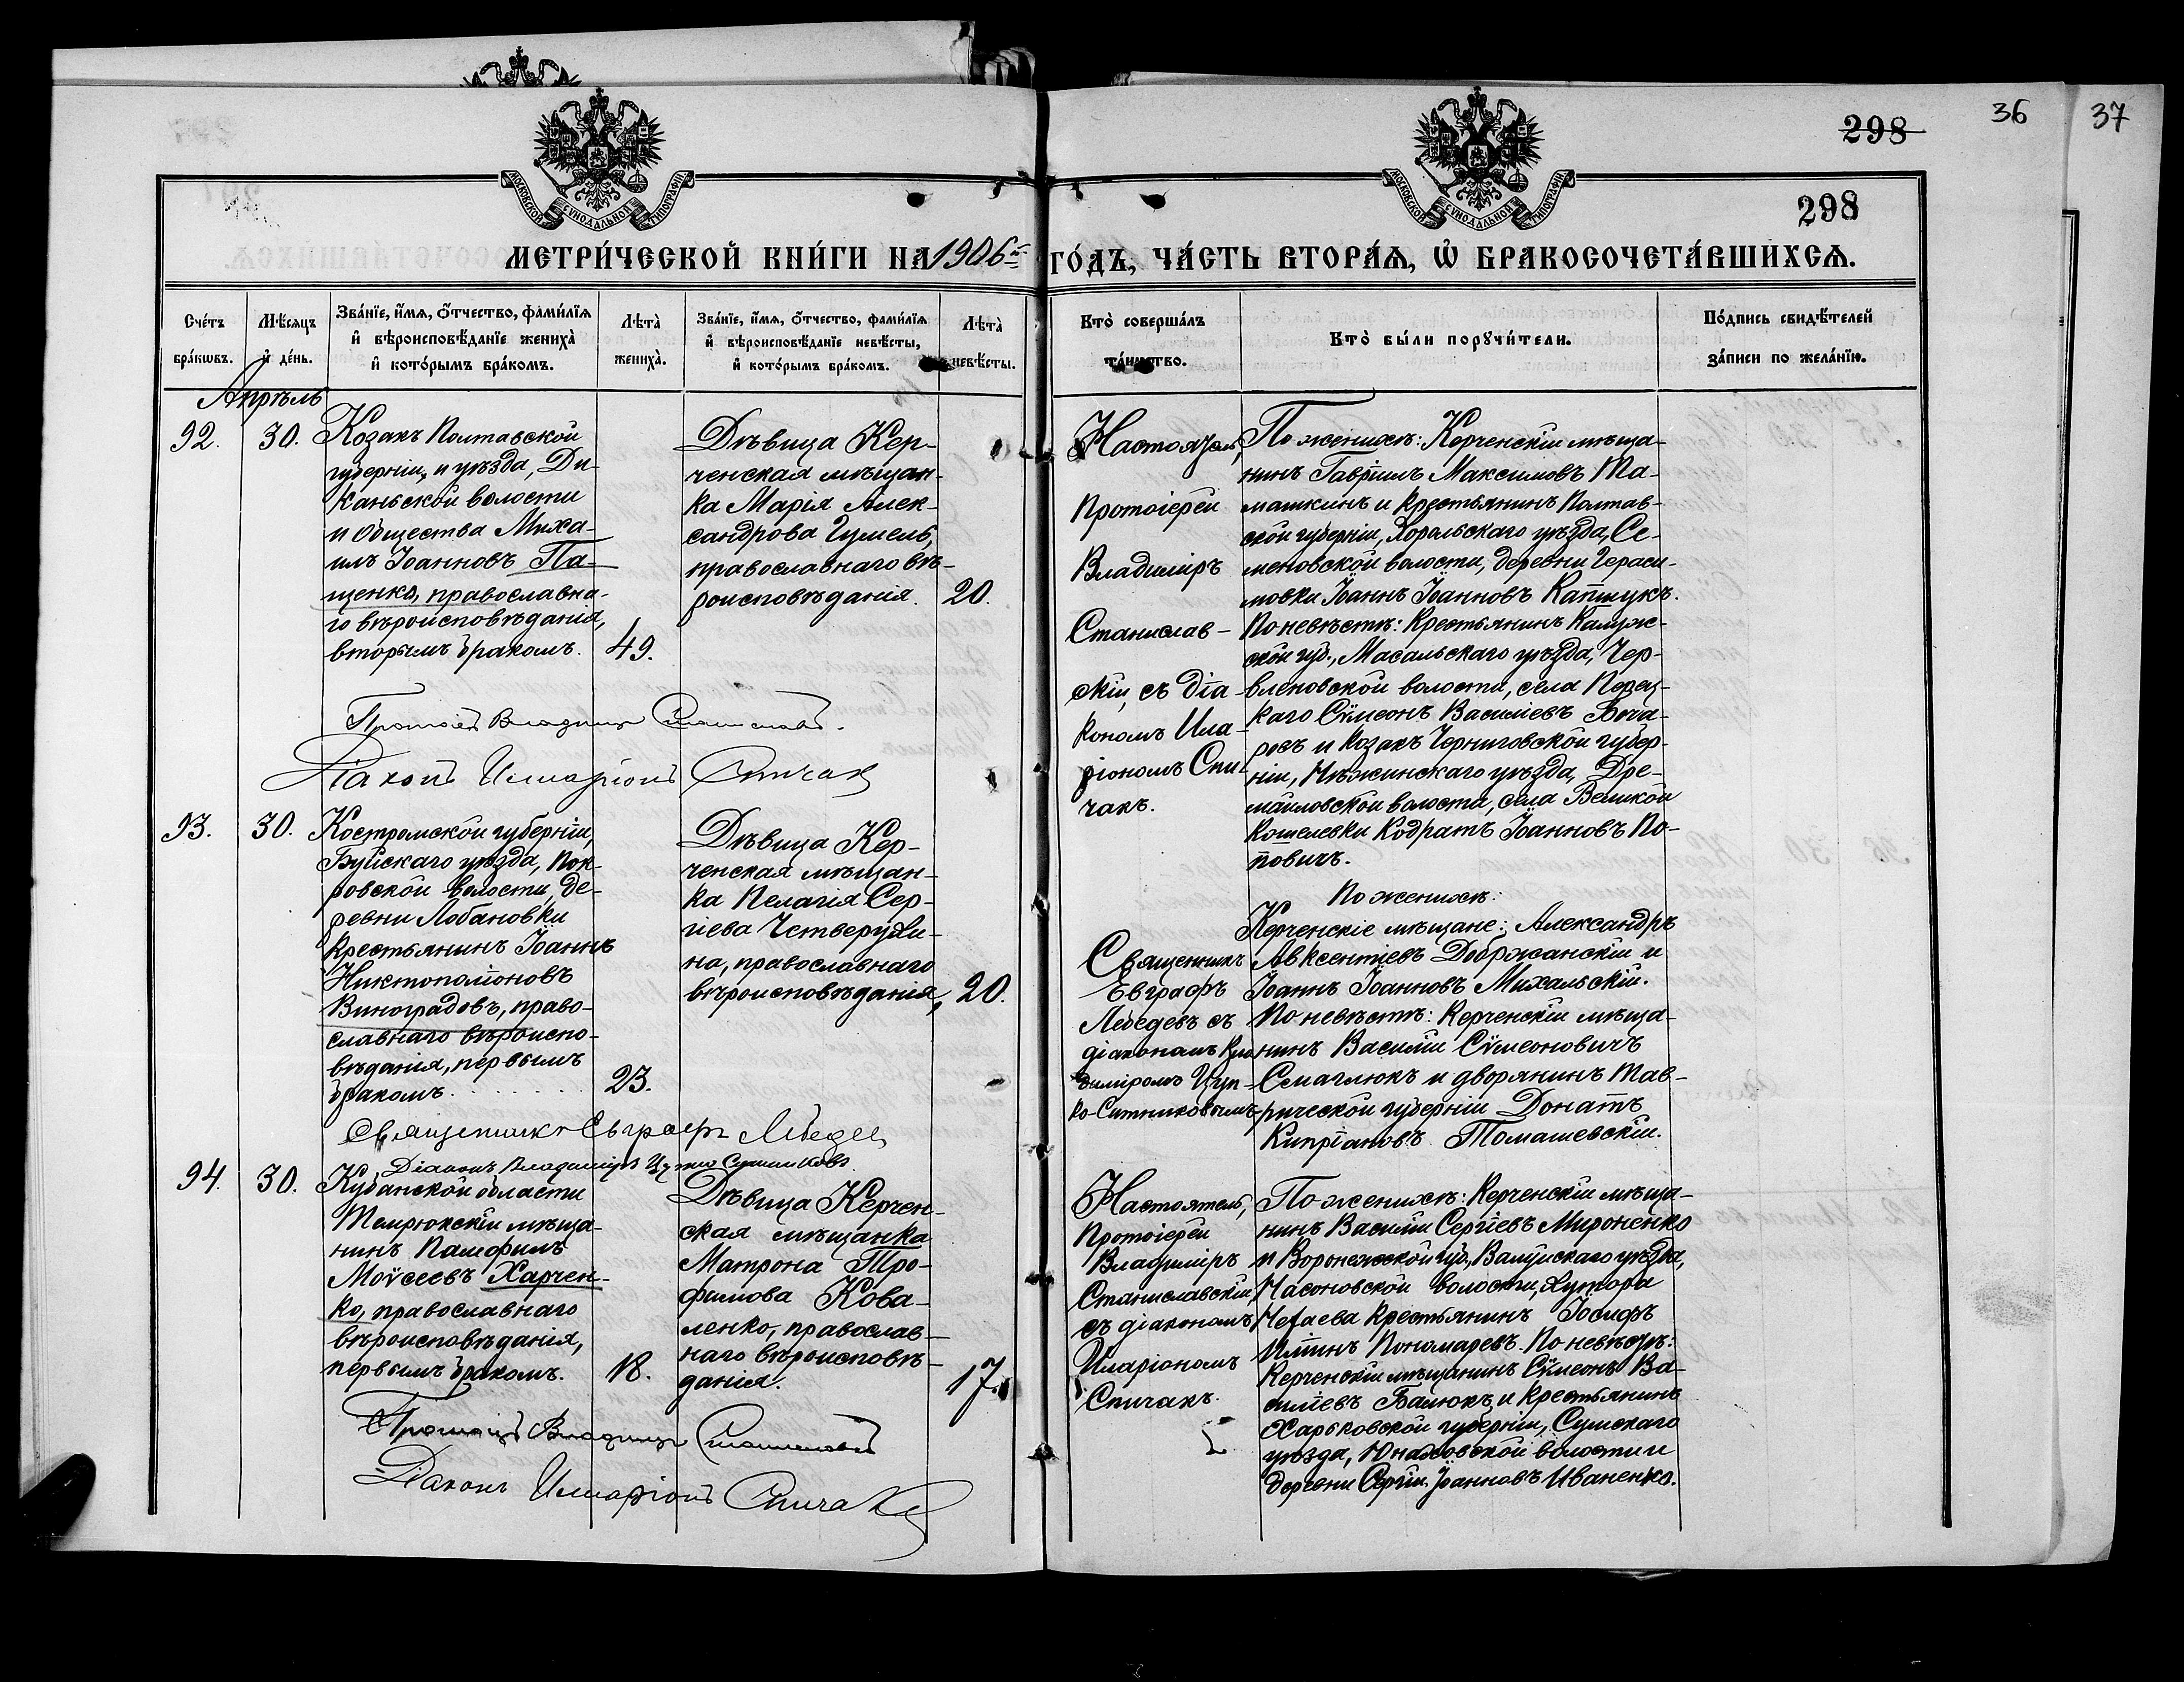 36
37
298
298
МОСКОВСКОЙ СѴНОДАЛЬНОЙ ТИПОГРАФІИ
МОСКОВСКОЙ СѴНОДАЛЬНОЙ ТИПОГРАФІИ
МЕТРИ́ЧЕСКОЙ КНИ́ГИ НА 1906 ГО́ДЪ, ЧА́СТЬ ВТОРА́Я, Ѽ БРАКОСОЧЕТА́ВШИХСѦ.
Сче́тъ бра́кѡвъ.
Мѣ́сѧцъ и҆ де́нь.
Зва́нїе, и҆́мѧ, ѻ҆́тчество, фами́лїѧ и҆ вѣроисповѣ́данїе жениха̀ и҆ кото́рымъ бра́комъ.
Лѣта̀ жениха̀.
Зва́нїе, и҆́мѧ, ѻ҆́тчество, фами́лїѧ и҆ вѣроисповѣ́данїе невѣ́сты, и҆ кото́рымъ бра́комъ.
Лѣта̀ невѣ́сты.
Кто̀ соверша́лъ та́инство.
Кто̀ бы́ли порꙋчи́тели.
По́дпись свидѣ́телей за́писи по жела́нїю.
Апрѣль
92.
30.
Козакъ Полтавской
губерніи, и уѣзда, Ди-
каньской волости
и общества Миха-
илъ Іоанновъ Па-
щенко, православна-
го вѣроисповѣданія,
вторымъ бракомъ.
49.
Дѣвица Кер-
ченская мѣщан-
ка Марія Алек-
сандрова Гумель,
православнаго вѣ-
роисповѣданія.
20.
Настоятель,
Протоіерей
Владиміръ
Станислав-
скій, съ діа-
кономъ Ила-
ріономъ Спи-
чакъ.
По женихѣ: Керченскій мѣща-
нинъ Гавріилъ Максимовъ Та-
машкинъ и крестьянинъ Полтав-
ской губерніи, Хорольскаго уѣзда, Се-
меновской волости, деревни Гераси-
мовки Іоаннъ Іоанновъ Капшукъ.
По невѣстѣ: Крестьянинъ Калуж-
ской губ., Масальскаго уѣзда, Чер-
вленовской волости, села
Сѵмеонъ Василіевъ Боча-
ровъ и козакъ Черниговской губер-
ніи, Нѣжинскаго уѣзда, Дре-
майловской волости, села Великой
Кошелевки Кодратъ Іоанновъ По-
повичъ.
Протоіерей Владиміръ Станиславскій.
Діаконъ Иларіонъ Спичакъ
93.
30.
Костромской губерніи,
Буйскаго уѣзда, Пок-
ровской волости, де-
ревни Лобановки
крестьянинъ Іоаннъ
Никтополіоновъ
Виноградовъ, право-
славнаго вѣроиспо-
вѣданія, первымъ
бракомъ.
23.
Дѣвица Кер-
ченская мѣщан-
ка Пелагія Сер-
гіева Четверухи-
на, православнаго
вѣроисповѣданія,
20.
Священникъ
Евграфъ
Лебедевъ съ
діакономъ Вла-
диміромъ Цуп-
ко-Ситниковымъ
По женихѣ:
Керченскіе мѣщане: Александръ
Авксентіевъ Добржанскій и
Іоаннъ Іоанновъ Михальскій.
По невѣстѣ: Керченскій мѣща-
нинъ Василій Сѵмеоновичъ
Семаглюкъ и дворянинъ Тав-
рической губерніи Донатъ
Кипріановъ Томашевскій.
Священникъ Евграфъ Лебедевъ
Діаконъ Владиміръ Цупко Ситниковъ
94.
30.
Кубанской области
Темрюкскій мѣща-
нинъ Памфилъ
Моѵсеевъ Харчен-
ко, православнаго
вѣроисповѣданія,
первымъ бракомъ.
18.
Дѣвица Керчен-
ская мѣщанка
Матрона Тро-
фимова Кова-
ленко, православ-
наго вѣроисповѣ-
данія.
17.
Настоятель,
Протоіерей
Владиміръ
Станиславскій
съ діакономъ
Иларіономъ
Спичакъ.
По женихѣ: Керченскій мѣща-
нинъ Василій Сергіевъ Мироненко
и Воронежской губ., Валуйскаго уѣзда,
Насоновской волости, хутора
Нечаева крестьянинъ Іосифъ
Иліинъ Пономаревъ. По невѣстѣ:
Керченскій мѣщанинъ Сѵмеонъ Ва-
силіевъ Балюкъ и крестьянинъ
Харьковской губерніи, Сумскаго
уѣзда, Юнаковской волости и
деревни Сергій Іоанновъ Иваненко.
Протоіерей Владиміръ Станиславскій
Діаконъ Иларіонъ Спичакъ